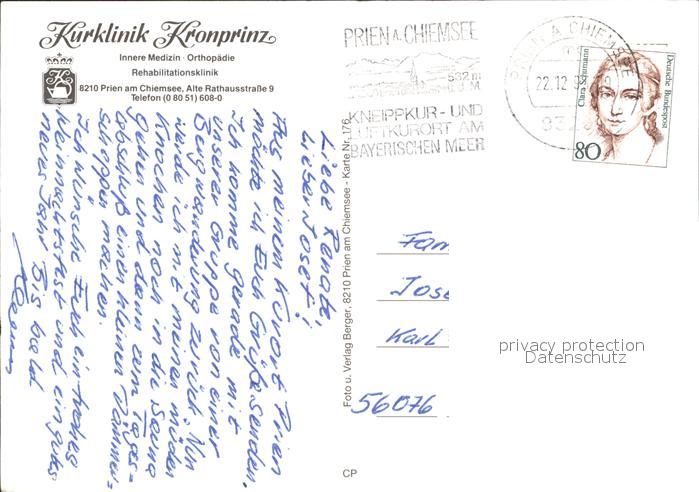 Kurklinik Kronprinz
Innere Medizin · Orthopädie
Rehabilitationsklinik
8210 Prien am Chiemsee, Alte Rathausstraße 9
Telefon (0 80 51) 608-0
PRIEN A. CHIEMSEE
532 m
ü. d. M.
KNEIPPKUR - UND
LUFTKURORT AM
BAYERISCHEN MEER
PRIEN A. CHIEMSEE
22.12.9
932
Clara Schumann
Deutsche Bundespost
80
Liebe Renate,
lieber Josef!
Aus meinem Kurort Prien
möchte ich Euch Grüße senden.
Ich komme gerade mit
unserer Gruppe von einer
Bergwanderung zurück. Nun
werde ich mit meinen müden
Knochen noch in die Sauna
gehen und dann zum Tages-
abschluß einen kleinen Dämmer-
schoppen machen.
Ich wünsche Euch ein frohes
Weihnachtsfest und ein gutes
neues Jahr. Bis bald
Foto u. Verlag Berger, 8210 Prien am Chiemsee - Karte Nr. 176
Fam
Jose
Karl
56076
privacy protection
Datenschutz
CP